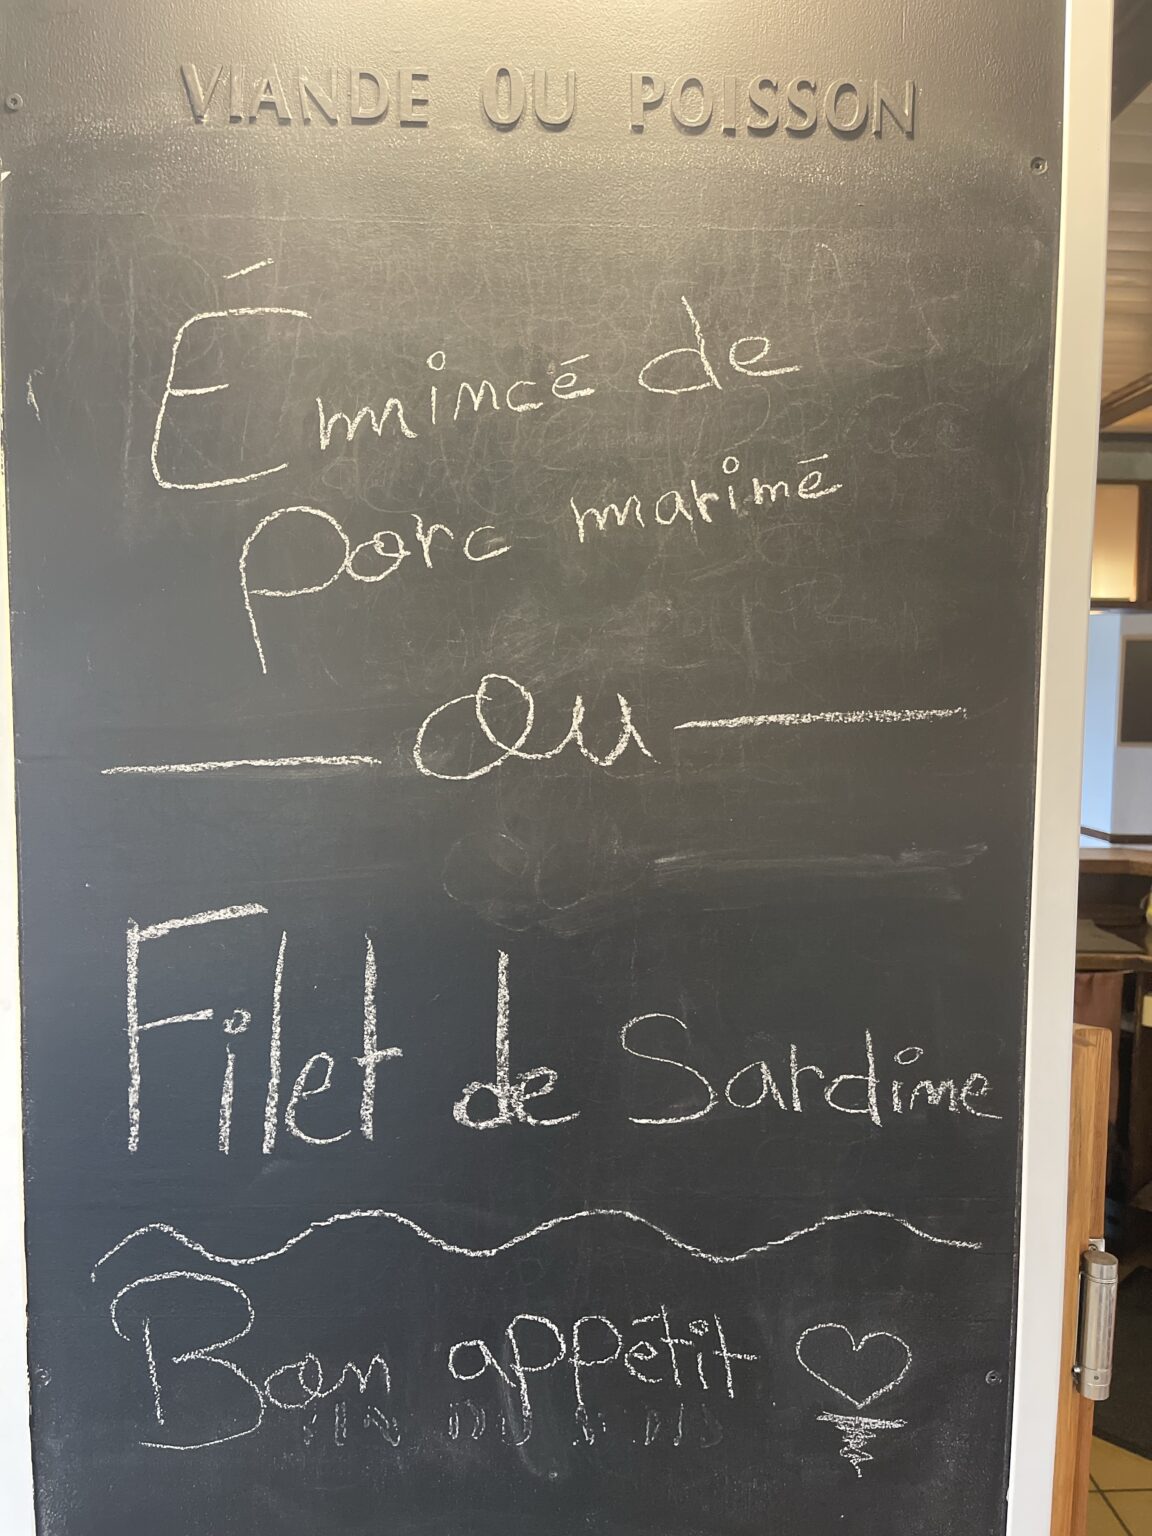 VIANDE OU POISSON
Émincé de
porc mariné
ou
Filet de Sardine
Bon appétit
VIN DU MOIS